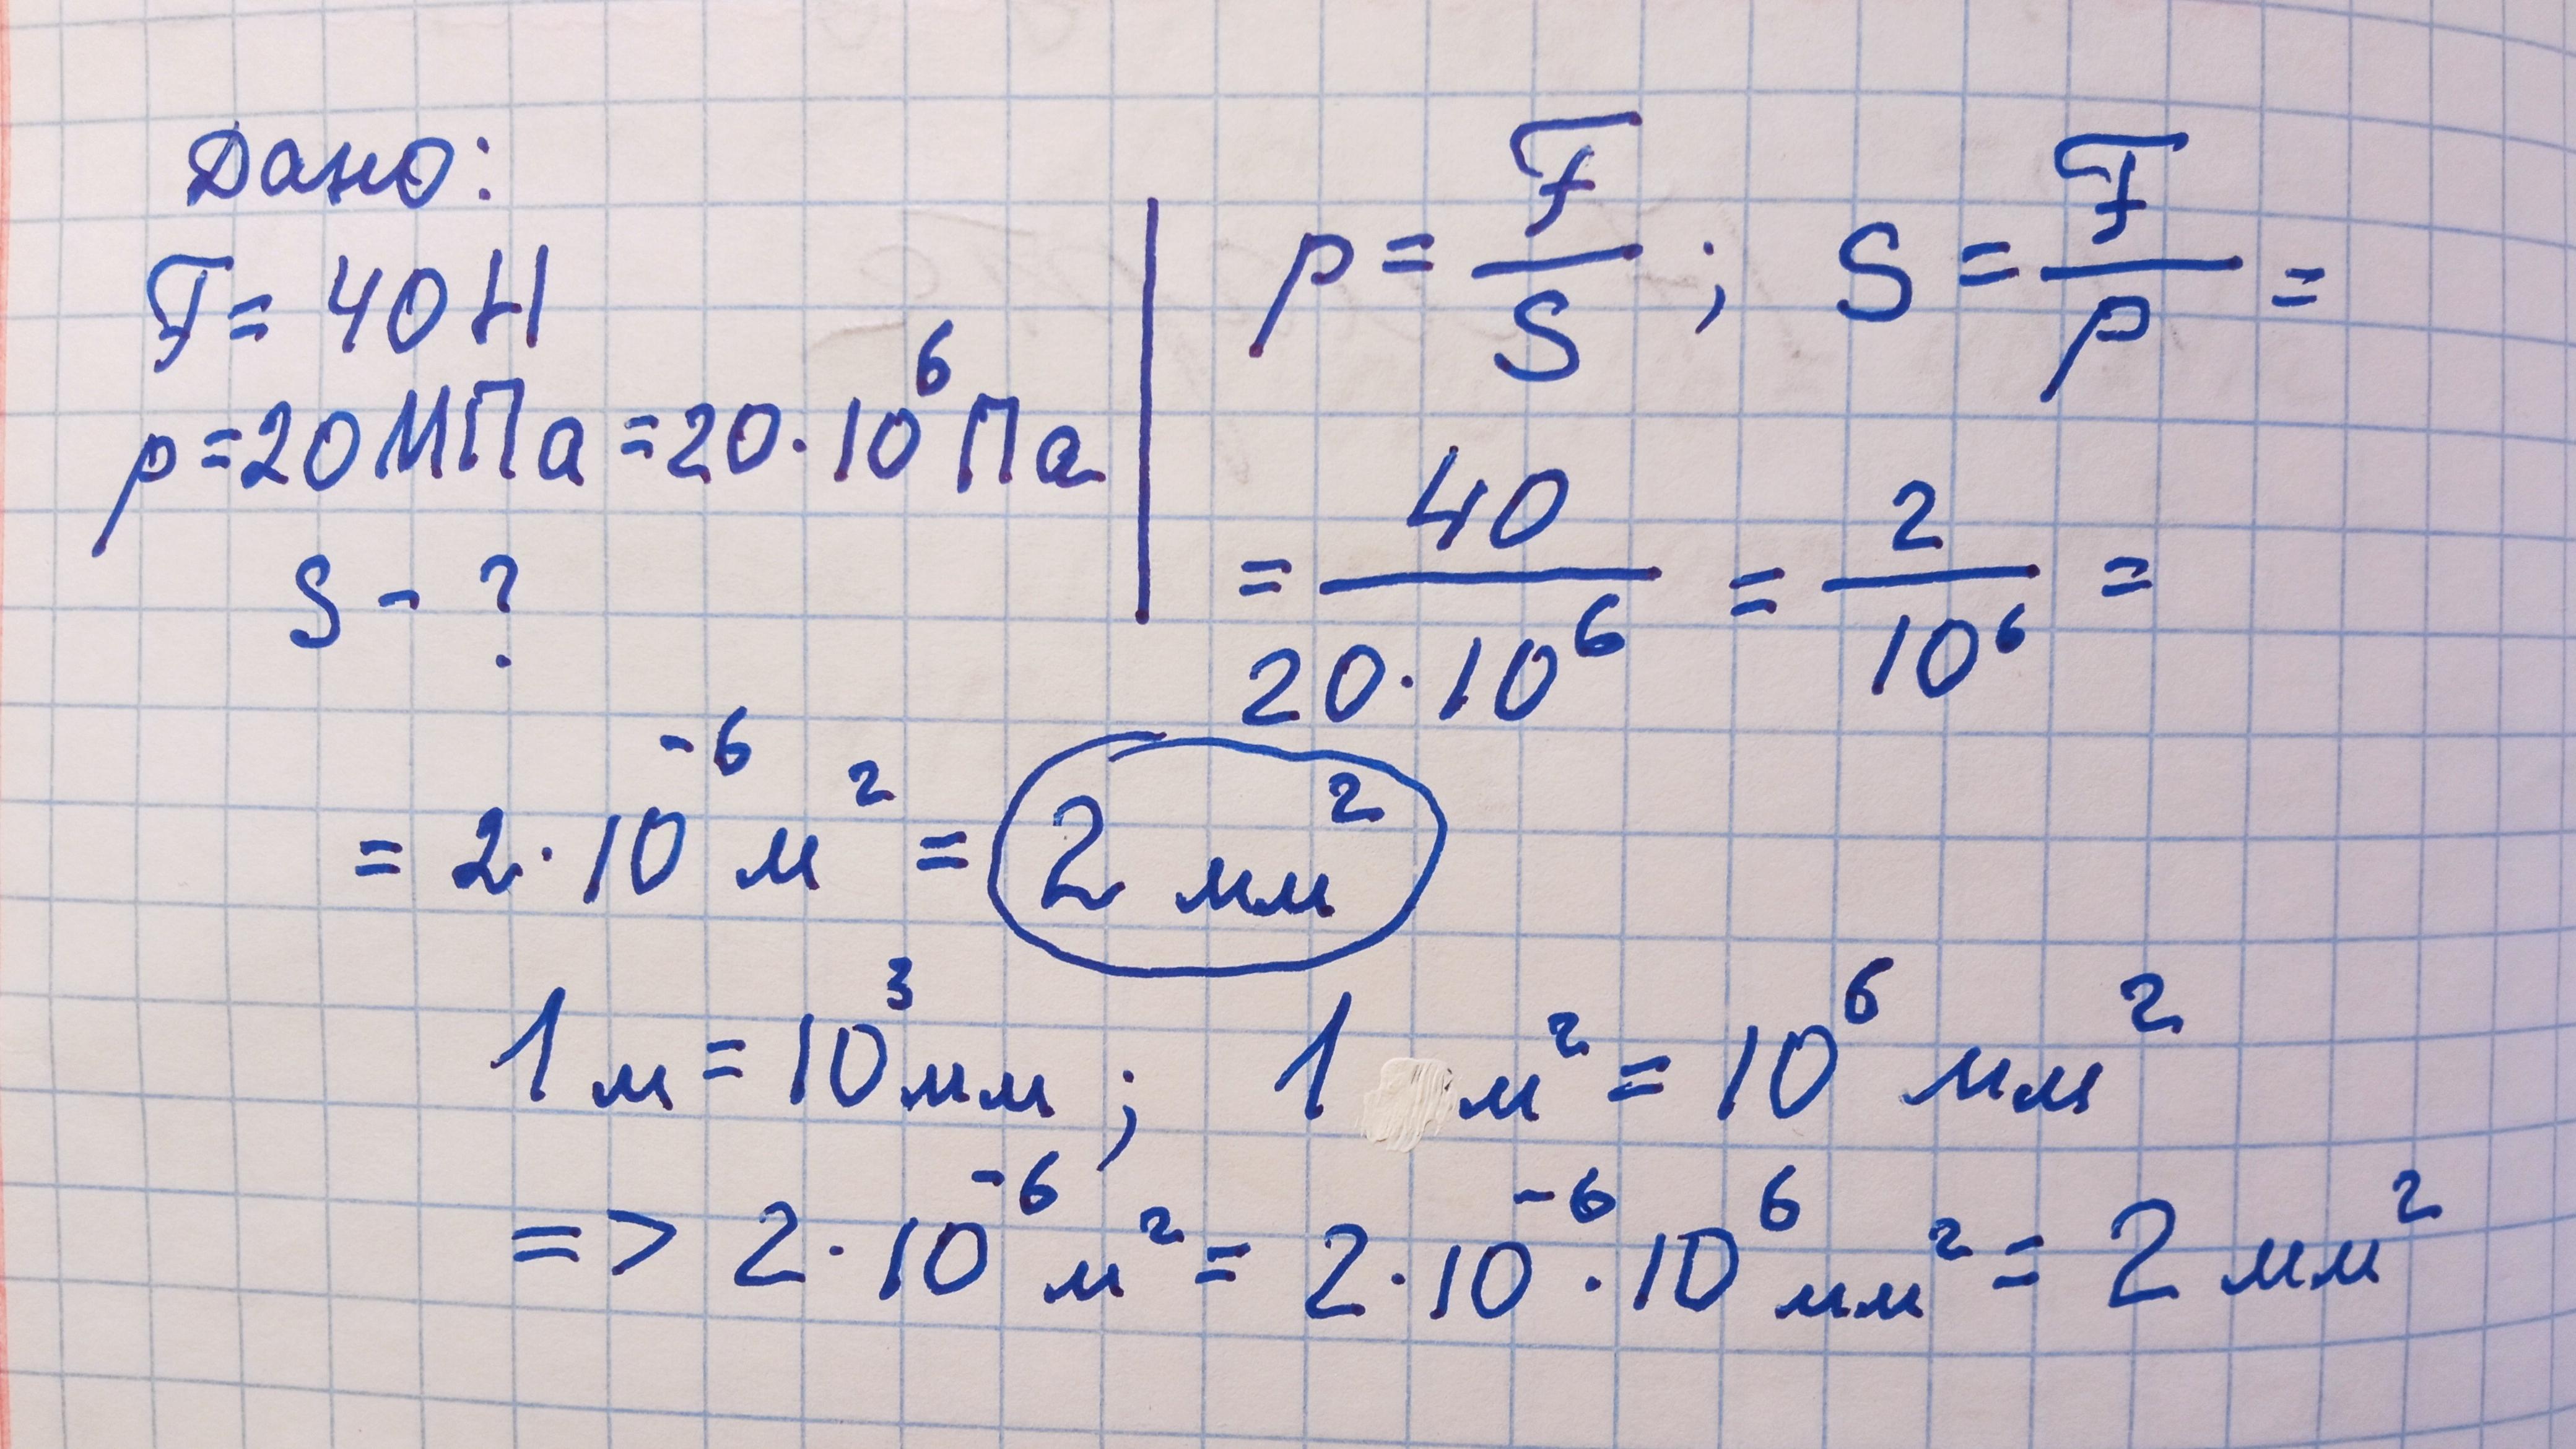 Дано:
F = 40 Н
p = 20 МПа = 20·10⁶ Па
S - ?
p = F/S ; S = F/p =
= 40/(20·10⁶) = 2/10⁶ =
= 2·10⁻⁶ м² = 2 мм²
1 м = 10³ мм ; 1 м² = 10⁶ мм²
=> 2·10⁻⁶ м² = 2·10⁻⁶·10⁶ мм² = 2 мм²